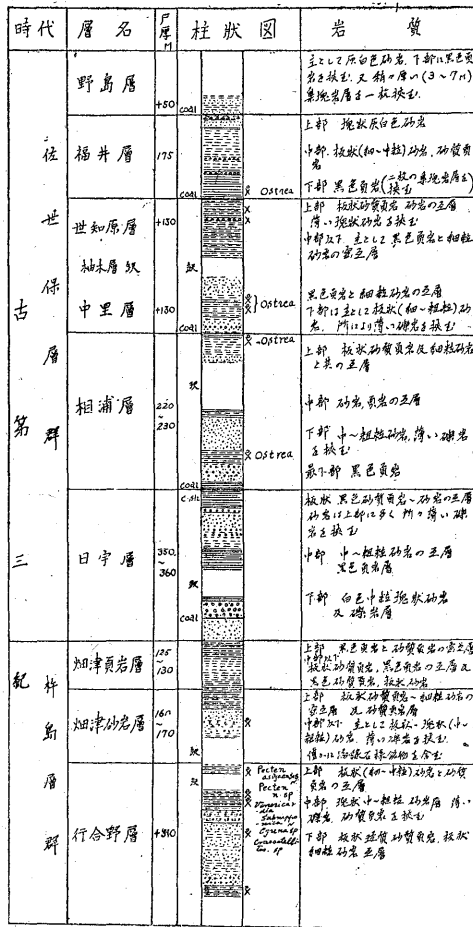 時代 層名 戸厚M 柱狀図 岩質
古第三紀
佐世保層群
杵島層群
野島層 +50 coal
主として灰白色砂岩、下部に黒色頁
岩を挟む 又稍々厚い(3~7m)
集塊岩層を一枚挟む
福井層 175 coal Ostrea
上部 塊狀灰白色砂岩
中部 板狀(細~中粒)砂岩、砂質頁
岩
下部 黒色頁岩(二枚の集塊岩層を
挟む
世知原層 +130
上部 板狀砂質頁岩 砂岩の互層
薄い塊狀砂岩を挟む
中部以下 主として黒色頁岩と細粒
砂岩の密互層
柚木層 欠
中里層 +130 coal Ostrea
黒色頁岩と細粒砂岩の互層
下部は主として板狀(細~粗粒)砂
岩、所により薄い礫岩を挟む
相浦層 220~230 欠 Ostrea Ostrea coal
上部 板狀砂質頁岩及細粒砂岩
と其の互層
中部 砂岩、頁岩の互層
下部 中~粗粒砂岩、薄い礫岩
を挟む
最下部 黒色頁岩
日宇層 350~360 c.sh 欠 coal
板狀 黒色砂質頁岩~砂岩の互層
砂岩は上部に多く 所々薄い礫
岩を挟む
中部 中~粗粒砂岩の互層
黒色頁岩層
下部 白色中粒塊狀砂岩
及礫岩層
畑津頁岩層 125~130
上部 黒色頁岩と砂質頁岩の密互層
中部以下
板狀砂質頁岩、黒色頁岩の互層及
黒色砂質頁岩、板狀砂岩
畑津砂岩層 160~170 欠
上部 板狀砂質頁岩~細粒砂岩の
密互層 及砂質頁岩層
中部以下 主として板狀~塊狀(中~
粗粒)砂岩、薄い礫岩を挟む
僅かに海緑石様鉱物を含む
行合野層 +310
Pecten
Pecten
n.sp
Venericar
dia
Cyrena sp
Crassatelli
tes. sp
上部 板狀(細~中粒)砂岩と砂質
頁岩の互層
中部 塊狀中~粗粒砂岩層 薄い
礫岩、砂質頁岩を挟む
下部 板狀硅質砂質頁岩、板狀
細粒砂岩互層